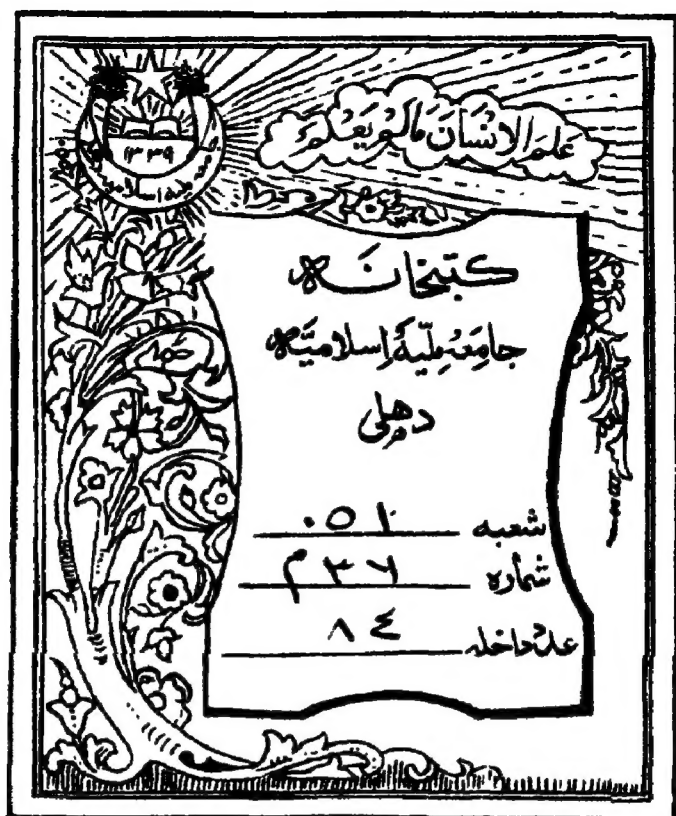 عَلَّمَ الْاِنْسَانَ مَالَمْ يَعْلَمْ
۱۳۳۹
جامعہ ملیہ اسلامیہ
کتبخانہ
جامعہ ملیہ اسلامیہ
دهلی
شعبہ ۰۵۱
شمارہ ۳۶ م
عدد داخلہ ۸۴